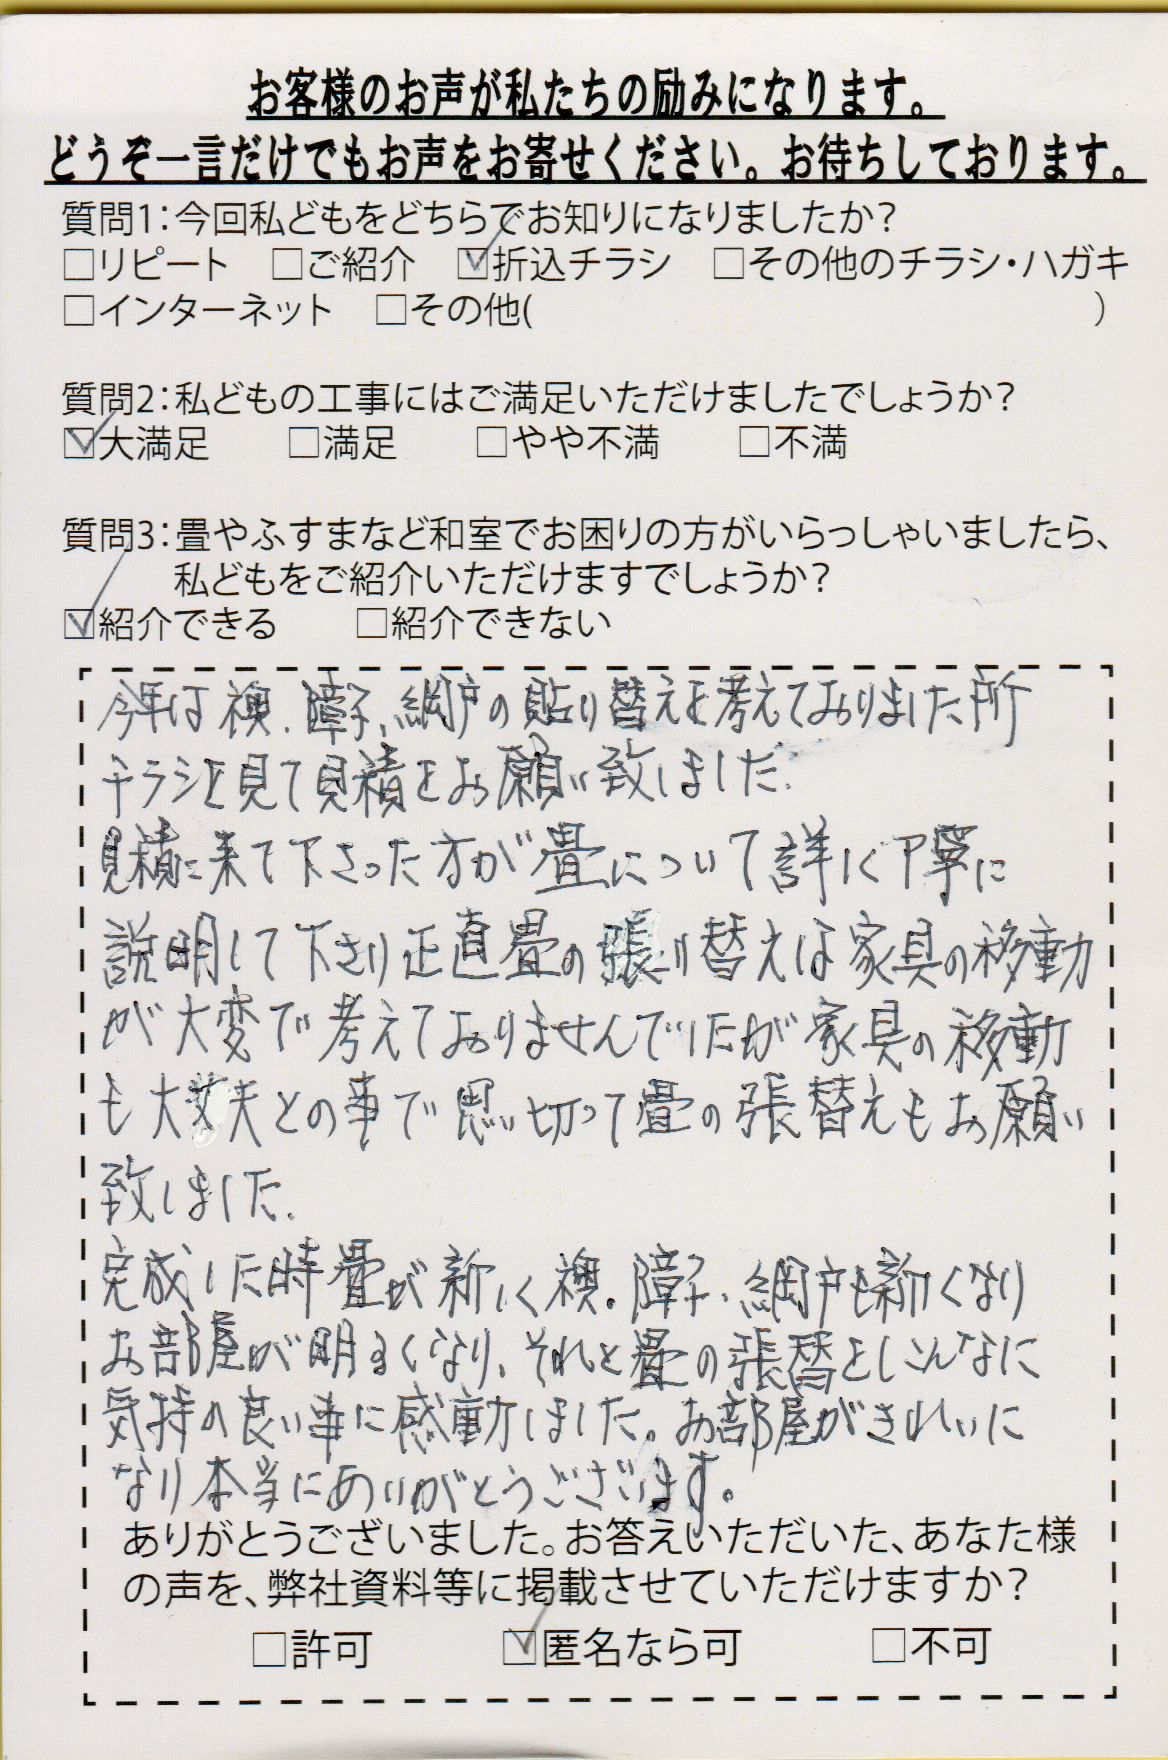 お客様のお声が私たちの励みになります。
どうぞ一言だけでもお声をお寄せください。お待ちしております。
質問1：今回私どもをどちらでお知りになりましたか？
□リピート　□ご紹介　☑折込チラシ　□その他のチラシ・ハガキ
□インターネット　□その他(　　　)
質問2：私どもの工事にはご満足いただけましたでしょうか？
☑大満足　□満足　□やや不満　□不満
質問3：畳やふすまなど和室でお困りの方がいらっしゃいましたら、
私どもをご紹介いただけますでしょうか？
☑紹介できる　□紹介できない
今年は襖、障子、網戸の貼り替えを考えておりました所
チラシを見て見積をお願い致しました。
見積に来て下さった方が畳について詳しく丁寧に
説明して下さり正直畳の張り替えは家具の移動
が大変で考えておりませんでしたが家具の移動
も大丈夫との事で思い切って畳の張替えもお願い
致しました。
完成した時畳が新しく襖、障子、網戸も新しくなり
お部屋が明るくなり、それと畳の張替をしこんなに
気持の良い事に感動しました。お部屋がきれいに
なり本当にありがとうございます。
ありがとうございました。お答えいただいた、あなた様
の声を、弊社資料等に掲載させていただけますか？
□許可　☑匿名なら可　□不可